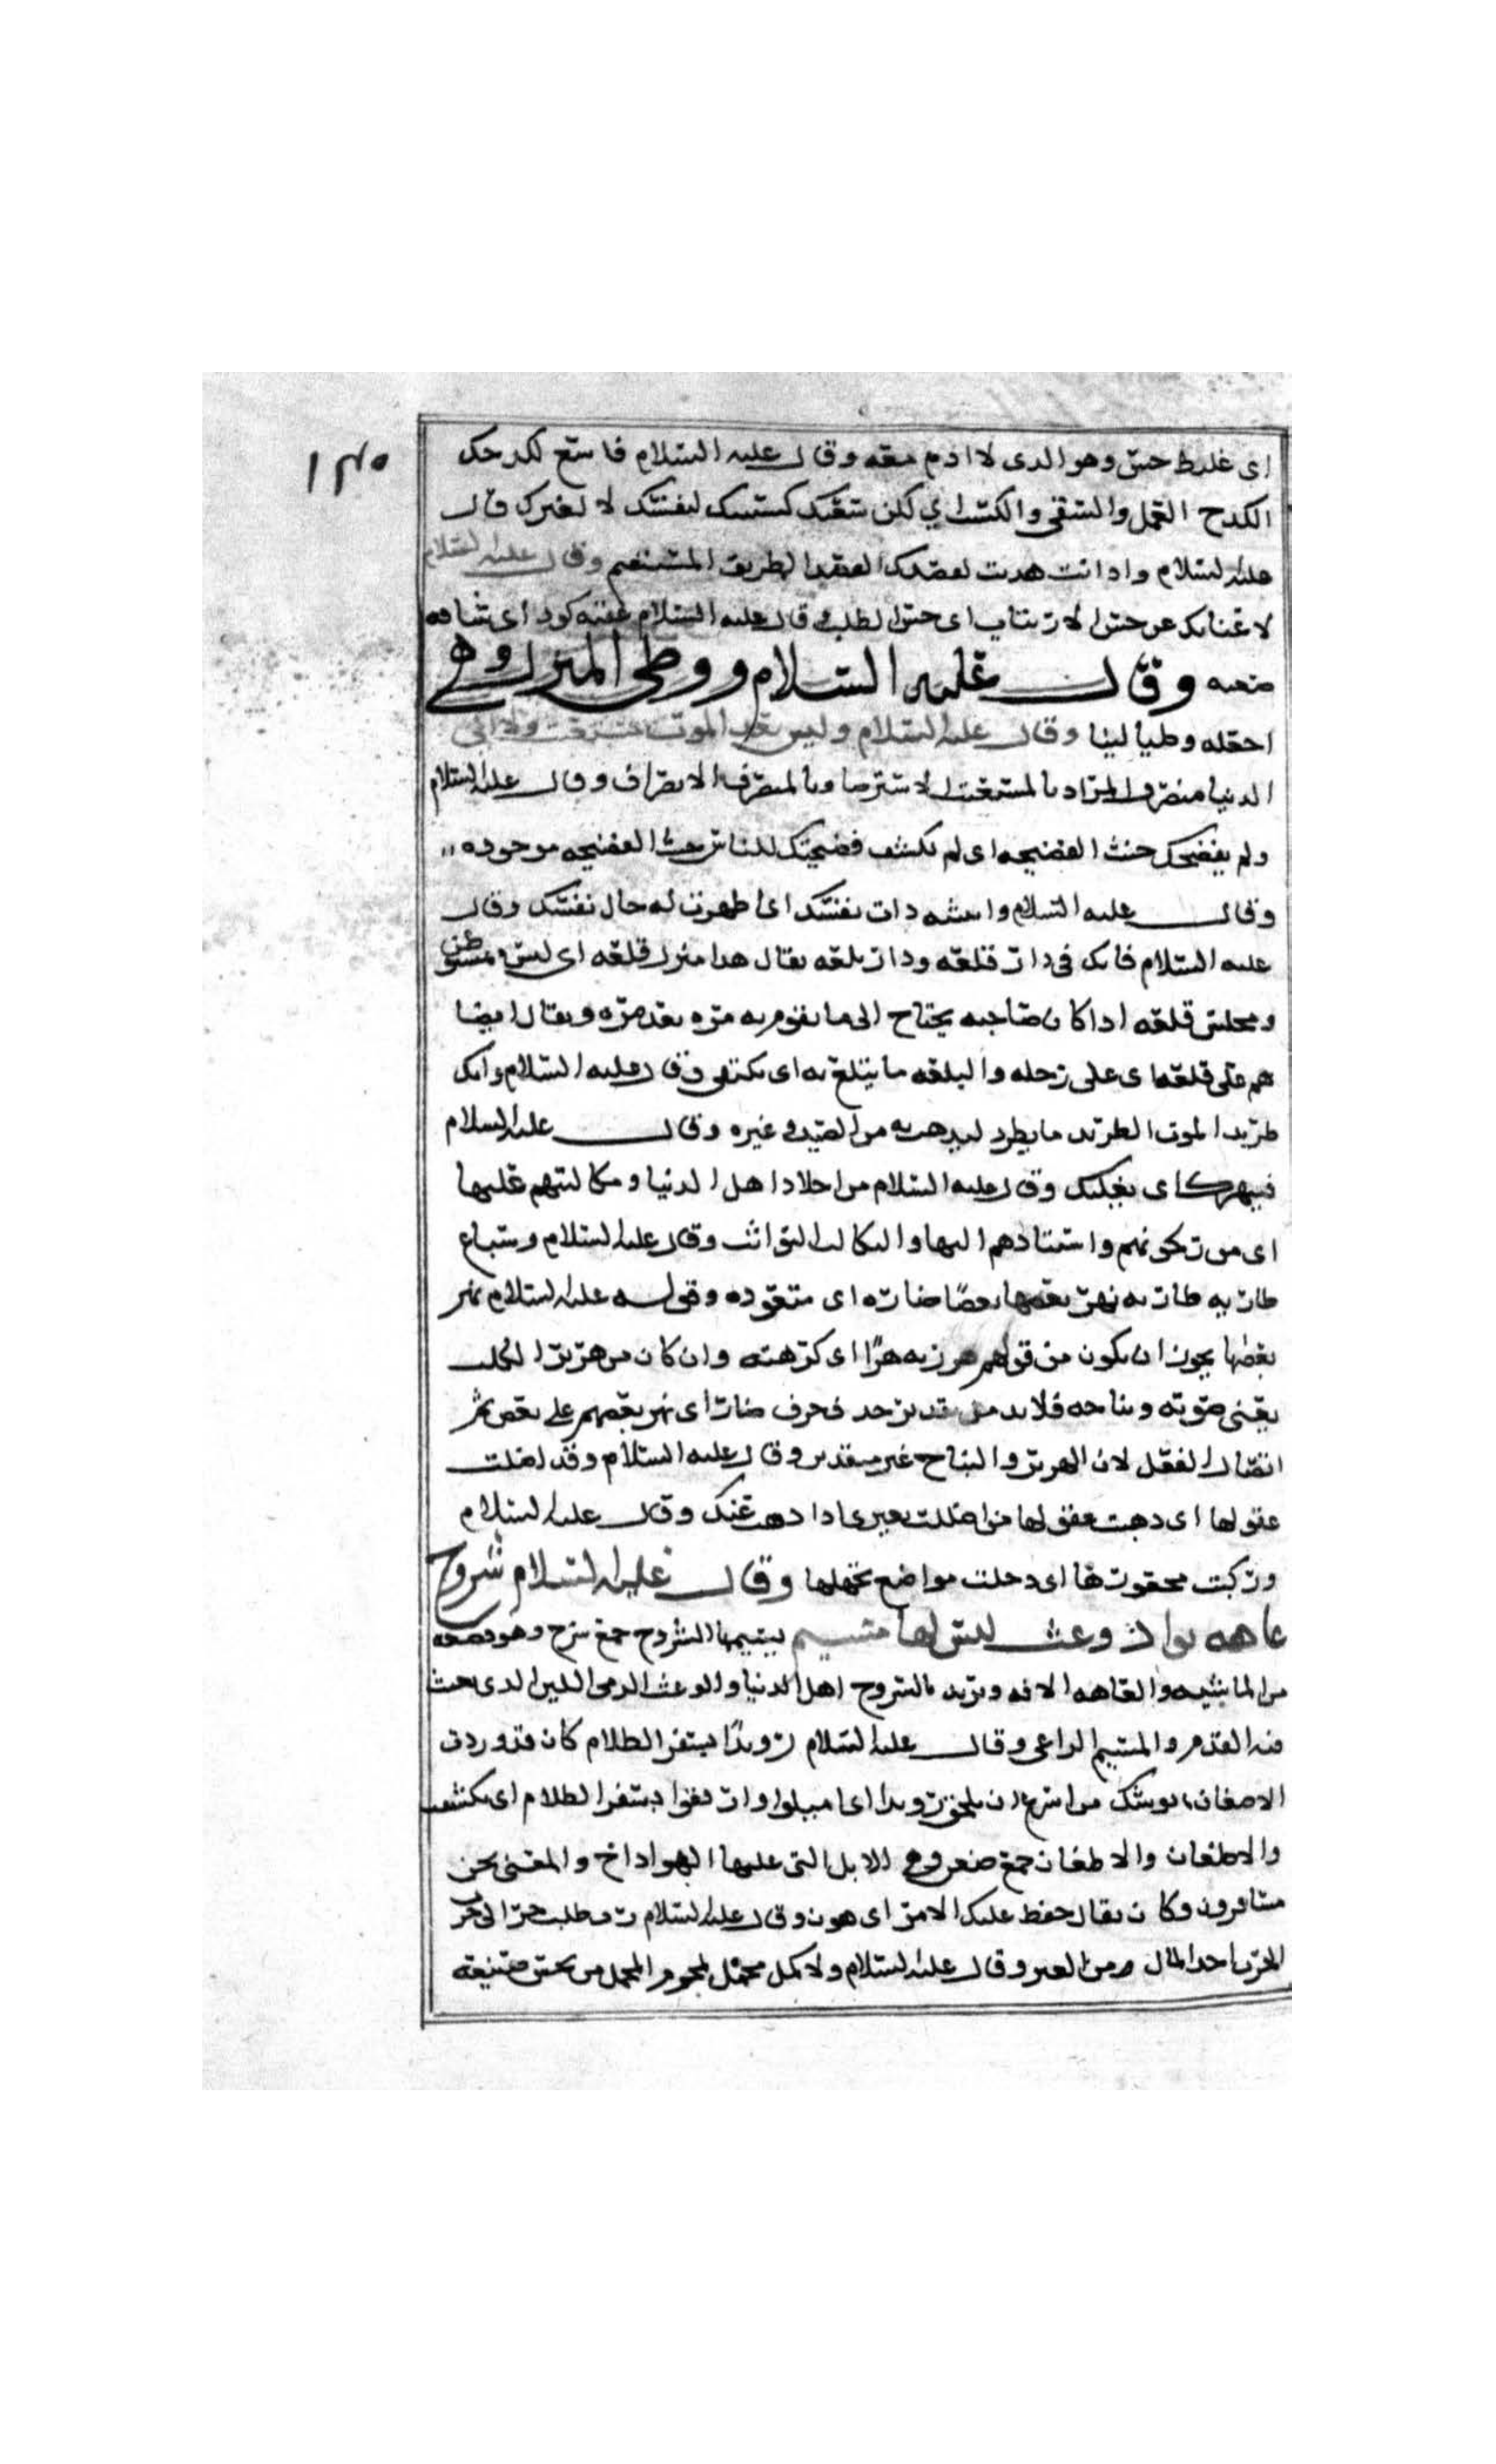 ١٣٥
اى غليط حسن وهو الدى لا ادم معه وقال عليه السلام فاسع لكدحك
الكدح العمل والسعى والكسب اي لكن سعيك كسبك لنفسك لا لغيرك قال
عليه السلام وادا انت هديت لعصدك العصد الطريق المستقيم وقال عليه السلام
لا غنابك عن حسن الارتياب اى حسن الطلب وقال عليه السلام عقبه كود اى شاقه
صعبه وقال عليه السلام ووطى المنزل وهى
احعله وطيا لينا وقال عليه السلام وليس بعد الموت مستعتب ولا الى
الدنيا منصرف المراد بالمستعتب الاسترصا وبالمنصرف الانصراف وقال عليه السلام
ولم يفضحك حيث الفضيحه اى لم يكشف فضيحتك للناس حيث الفضيحه موحوده
وقال عليه السلام وابثثته دات نفسك اى اطهرت له حال نفسك وقال
عليه السلام فانك فى دار قلعه ودار بلعه يقال هدا منزل قلعه اى ليس بمستوطن
ومجلس قلعه ادا كان صاحبه يحتاج الى ما يقوم به مره بعد مره ويقال ايضا
هم على قلعه اى على رحله والبلغه ما يتبلغ به اى يكتفى وقال عليه السلام وانك
طريد الموت الطريد ما يطرد ليدهب به من الصيد وغيره وقال عليه السلام
فيبهرك اى يعجلك وقال عليه السلام من احلاد اهل الدنيا ومكالبتهم عليها
اى من ركونهم واستنادهم اليها والتكالب التواثب وقال عليه السلام وسباع
ضاريه ضاريه يهر بعضها بعضا ضاره اى متعوده وقوله عليه السلام يهر
بعضها يجوز ان يكون من قولهم هرزيه هرا اى كرهته وان كان من هرير الكلب
يعنى صوته ونباحه فلا بد من تقدير حد ف حرف ضار اى يهر بعضهم على بعض ثم
اتصال الفعل لان الهرير والنباح غير متعدين وقال عليه السلام وقد اضلت
عقولها اى دهبت عقولها من اضللت بعيرى ادا دهب عنك وقال عليه السلام
وركبت مجهولها اى دخلت مواضع تجهلها وقال عليه السلام سروح
عاهه بواد وعث ليس لها مسيم يسيمها السروح جمع سرح وهو دفعه
من الماشيه والعاهه الافه ويريد بالسروح اهل الدنيا والوعث الرمى اللين الدى يعث
فيه القدم والمسيم الراعى وقال عليه السلام رويدا يسفر الظلام كان قد وردت
الاضعان يوشك من اسرع ان يلحق رويدا اى امهلوا وارفقوا يسفر الظلام اى يكشف
والاظعان والاظعان جمع ضعن وهى الابل التى عليها الهوادج والمعنى نحن
مسافرون وكان يقال خفض عليك الامر اى هون وقال عليه السلام رب طلب جر الى حرب
الحرب اخد المال ومن الغير وقال عليه السلام ولا كل مجمل بمحروم المجمل من يحسن صنيعه